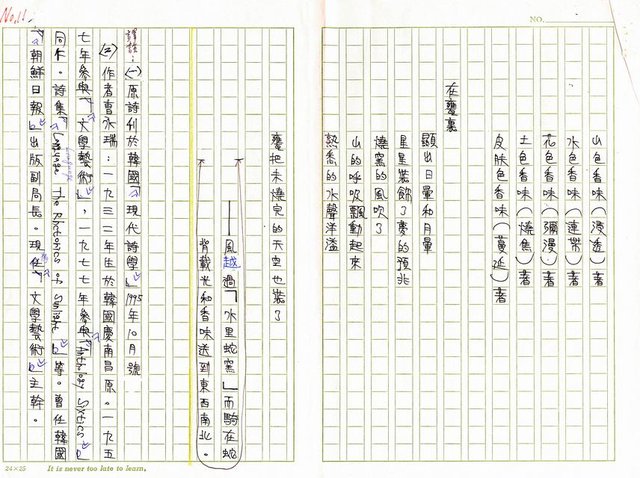 NO.
山色香味(浸透)著
水色香味(蓮帶)著
花色香味(彌漫)著
土色香味(燒焦)著
皮肤色香味(蔓延)著
在甕裏
顯出日暈和月暈
星星裝飾了夢的預兆
燒窯的風吹了
山的呼吸飄動起來
熟悉的水聲洋溢
No.11
甕把未燒完的天空也裝了
——風越過「水里蛇窯」而騎在蛇
背載光和香味送到東西南北。
譯註:(一)原詩刊於韓國「現代詩學」1995年10月號
(二)作者曹永瑞:一九三二年生於韓國慶南昌原。一九五
七年參與「文學藝術」,一九七七年參與「Anthology Sixties」
同仁。詩集「Language The Rhetorics of Smile」等。曾任韓國
「朝鮮日報」出版副局長。現任「文學藝術」主幹。
24×25 It is never too late to learn.